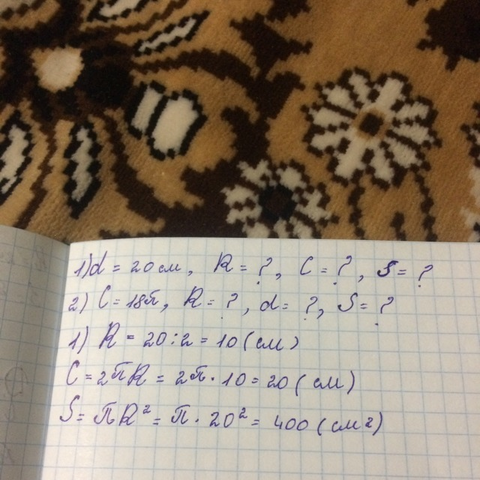 1) d = 20 см, R = ?, C = ?, S = ?
2) C = 18π, R = ?, d = ?, S = ?
1) R = 20 : 2 = 10 (см)
C = 2πR = 2π · 10 = 20 (см)
S = πR² = π · 20² = 400 (см²)